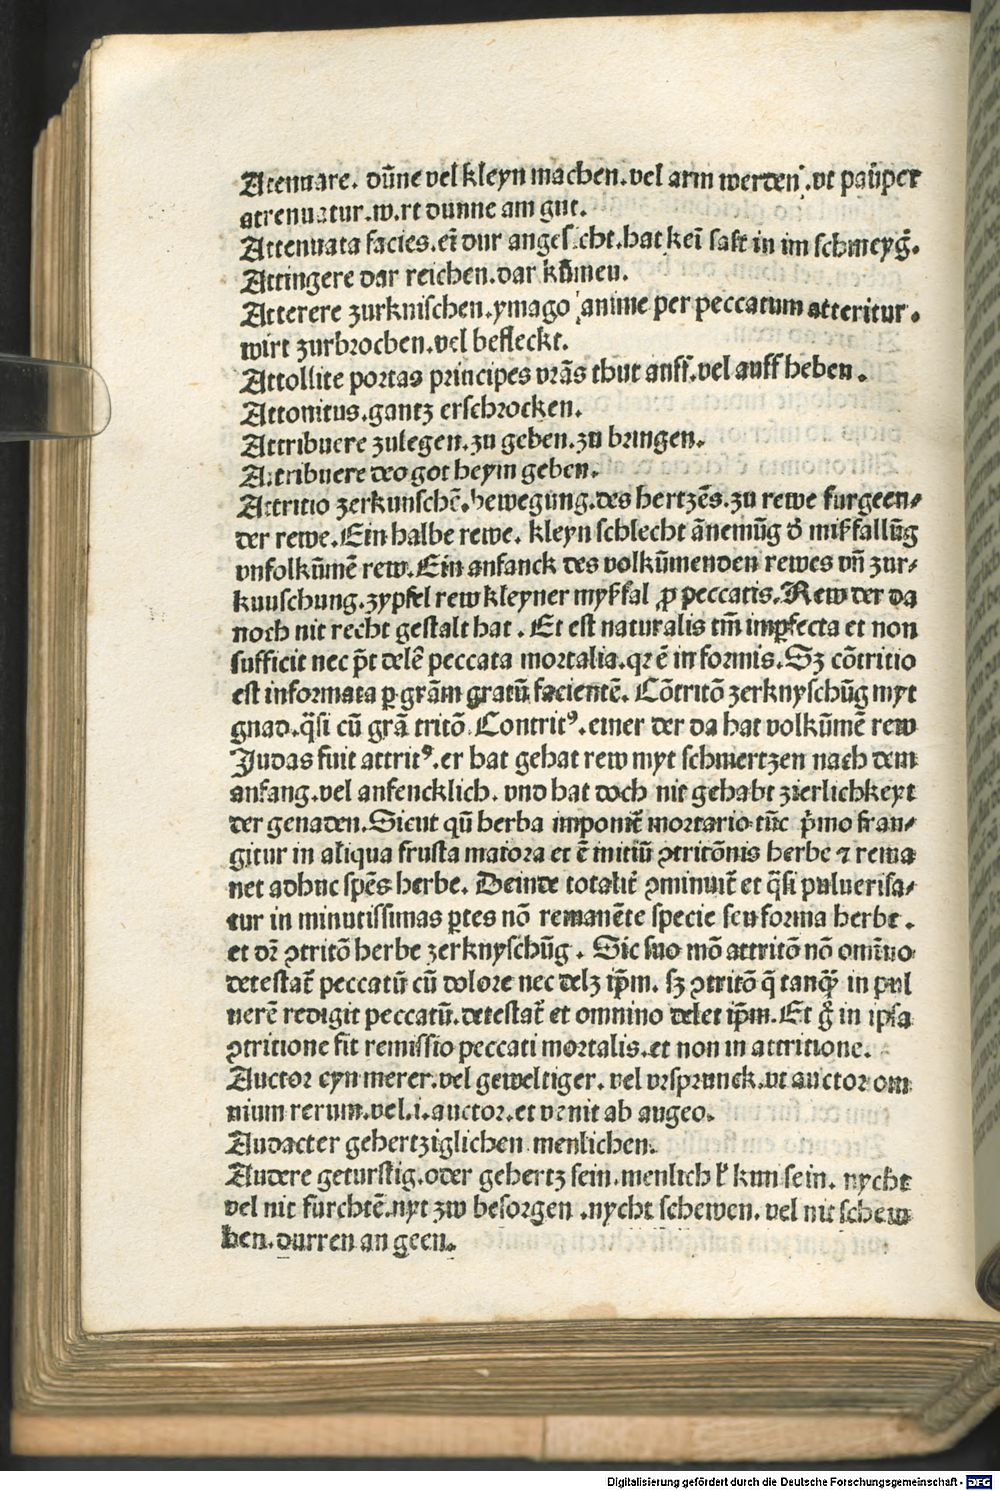 Atenuare. dūne vel kleyn machen.vel arm werden.vt pauper
atrenuatur.wirt dunne am gut.
Attenuata facies.ei dur angesicht.hat kei saft in im schmeyg.
Attingere dar reichen.dar kūmen.
Atterere zurknischen.ymago anime per peccatum atteritur.
wirt zurbrochen.vel befleckt.
Attollite portas principes vrās thut auff.vel auff heben.
Attonitus.gantz erschrocken.
Attribuere zulegen.zu geben.zu bringen.
Attribuere deo got heym geben.
Attritio zerknuschē.bewegung.des hertzēs.zu rewe furgeen⸗
der rewe.Ein halbe rewe. kleyn schlecht ānemūg d̄ mißfallūg
vnfolkūmē rew.Ein anfanck des volkūmenden rewes vn̄ zur⸗
knuschung.zypfel rew kleyner myßfal ꝓ peccatis.Rew der da
noch nit recht gestalt hat. Et est naturalis tm̄ imꝑfecta et non
sufficit nec p̄t delē peccata mortalia.qꝛ ē informis.Sz cōtritio
est informata ꝑ grām gratū facientē. Cōtritō zerknyschūg myt
gnad.q̄si cū grā tritō.Contritꝰ.einer der da hat volkūmē rew
Judas fuit attritꝰ.er hat gehat rew myt schmertzen nach dem
anfang.vel anfencklich. vnd hat doch nit gehabt zierlichkeyt
der genaden.Sicut qū herba imponit̄ mortario tūc p̄mo fran⸗
gitur in aliqua frusta maiora et ē initiū ꝯtritōnis herbe ⁊ rema
net adhuc spēs herbe. Deinde totalit̄ ꝯminuit̄ et q̄si puluerisa⸗
tur in minutissimas ꝑtes nō remanēte specie seu forma herbe.
et dꝛ̄ ꝯtritō herbe zerknyschūg. Sic suo mō attritō nō omīno
detestat̄ peccatū cū dolore nec delz ip̄m. sz ꝯtritō q̄ tanq̄ in pul
uerē redigit peccatū.detestat̄ et omnino delet ip̄m.Et g̊ in ipsa
ꝯtritione fit remissio peccati mortalis.et non in attritione.
Auctor eyn merer.vel geweltiger. vel vrsprunck.vt auctor om
nium rerum.vel.i.auctor.et venit ab augeo.
Audacter gehertziglichen menlichen.
Audere geturstig.oder gehertz sein.menlich kun sein. nycht
vel nit furchtē.nyt zw besorgen.nycht schewen. vel nit schew
hen.durren an geen.
Digitalisierung gefördert durch die Deutsche Forschungsgemeinschaft - DFG